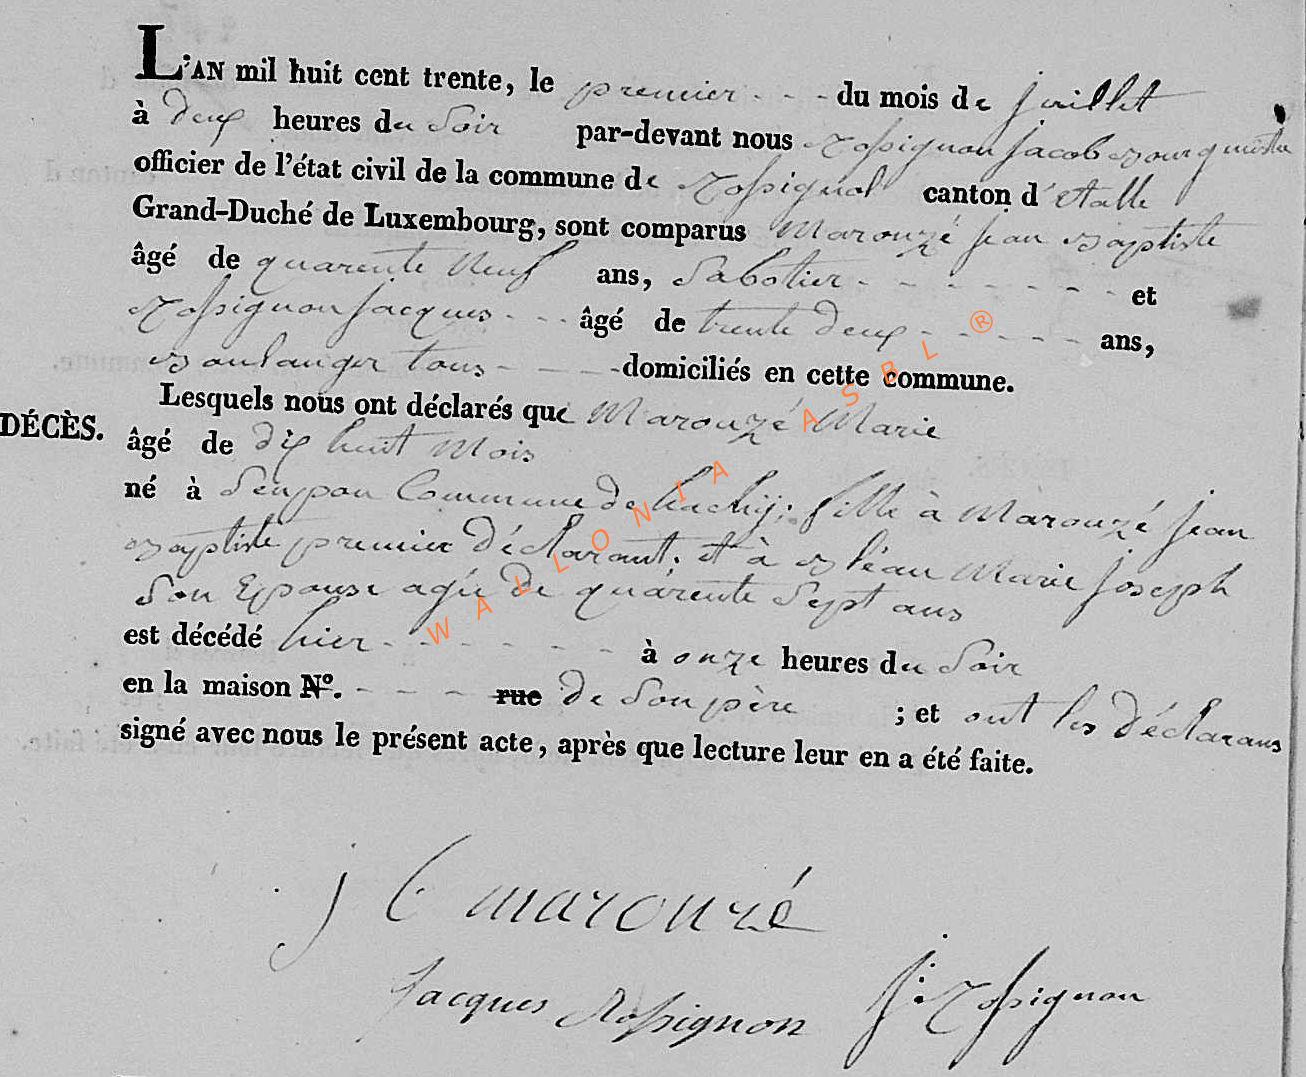 L'AN mil huit cent trente, le premier - - - du mois de juillet
à deux heures du Soir par-devant nous Rossignon Jacob Bourgmestre
officier de l'état civil de la commune de Rossignol canton d'etalle
Grand-Duché de Luxembourg, sont comparus Marouzé Jean Baptiste
âgé de quarente Neuf ans, Sabotier - - - - - - - et
Rossignon Jacques - - - âgé de trente deux - - - - - ans,
Boulanger tous - - - - domiciliés en cette commune.
Lesquels nous ont déclarés que Marouzé Marie
DÉCÈS.
âgé de dix huit Mois
né à Commune de hachy; fille à Marouzé Jean
Baptiste premier Déclarant; et à Bléau Marie Joseph
Son Epouse agée de quarente Sept ans
est décédé hier - - - - - - à onze heures du Soir
en la maison N°. - - - rue de Son père ; et ont les Déclarans
signé avec nous le présent acte, après que lecture leur en a été faite.
WALLONIA ASBL ®
J B marouzé
Jacques Rossignon J: Rossignon